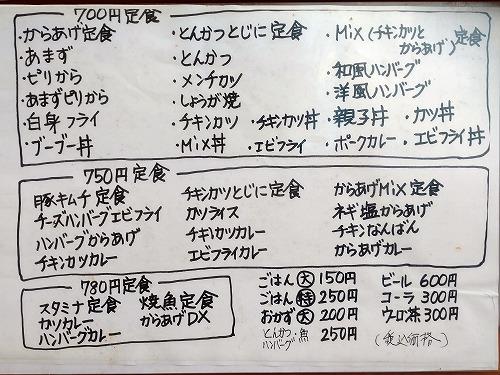 700円定食
・からあげ定食
・あまず
・ピリから
・あまずピリから
・白身フライ
・ブーブー丼
・とんかつとじに定食
・とんかつ
・メンチカツ
・しょうが焼
・チキンカツ ・チキンカツ丼
・Mix丼 ・エビフライ
・Mix(チキンカツとからあげ)定食
・和風ハンバーグ
・洋風ハンバーグ
・親子丼 ・カツ丼
・ポークカレー ・エビフライ丼
750円定食
豚キムチ定食
チーズハンバーグエビフライ
ハンバーグからあげ
チキンカツカレー
チキンカツとじに定食
カツライス
チキカツカレー
エビフライカレー
からあげMix定食
ネギ塩からあげ
チキンなんばん
からあげカレー
780円定食
スタミナ定食 焼魚定食
カツカレー からあげDX
ハンバーグカレー
ごはん(大)150円
ごはん(特)250円
おかず(大)200円
とんかつ・魚
ハンバーグ 250円
ビール 600円
コーラ 300円
ウーロン茶300円
(税込価格)